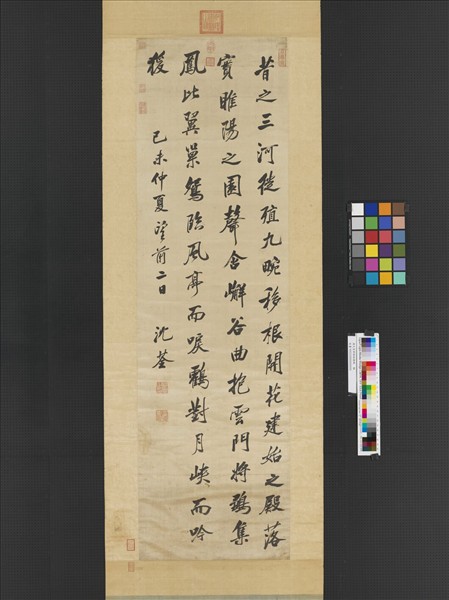 昔之三河徙殖九畹移根開花建始之殿落
實睢陽之園聲含嶰谷曲抱雲門將鶵集
鳳比翼巢鴛臨風亭而唳鶴對月峽而吟
猨
己未仲夏望前二日 沈荃